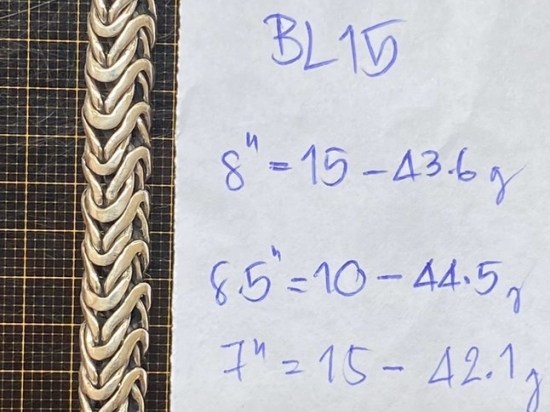 BL15
8" = 15 - 43.6 g
8.5" = 10 - 44.5 g
7" = 15 - 42.1 g